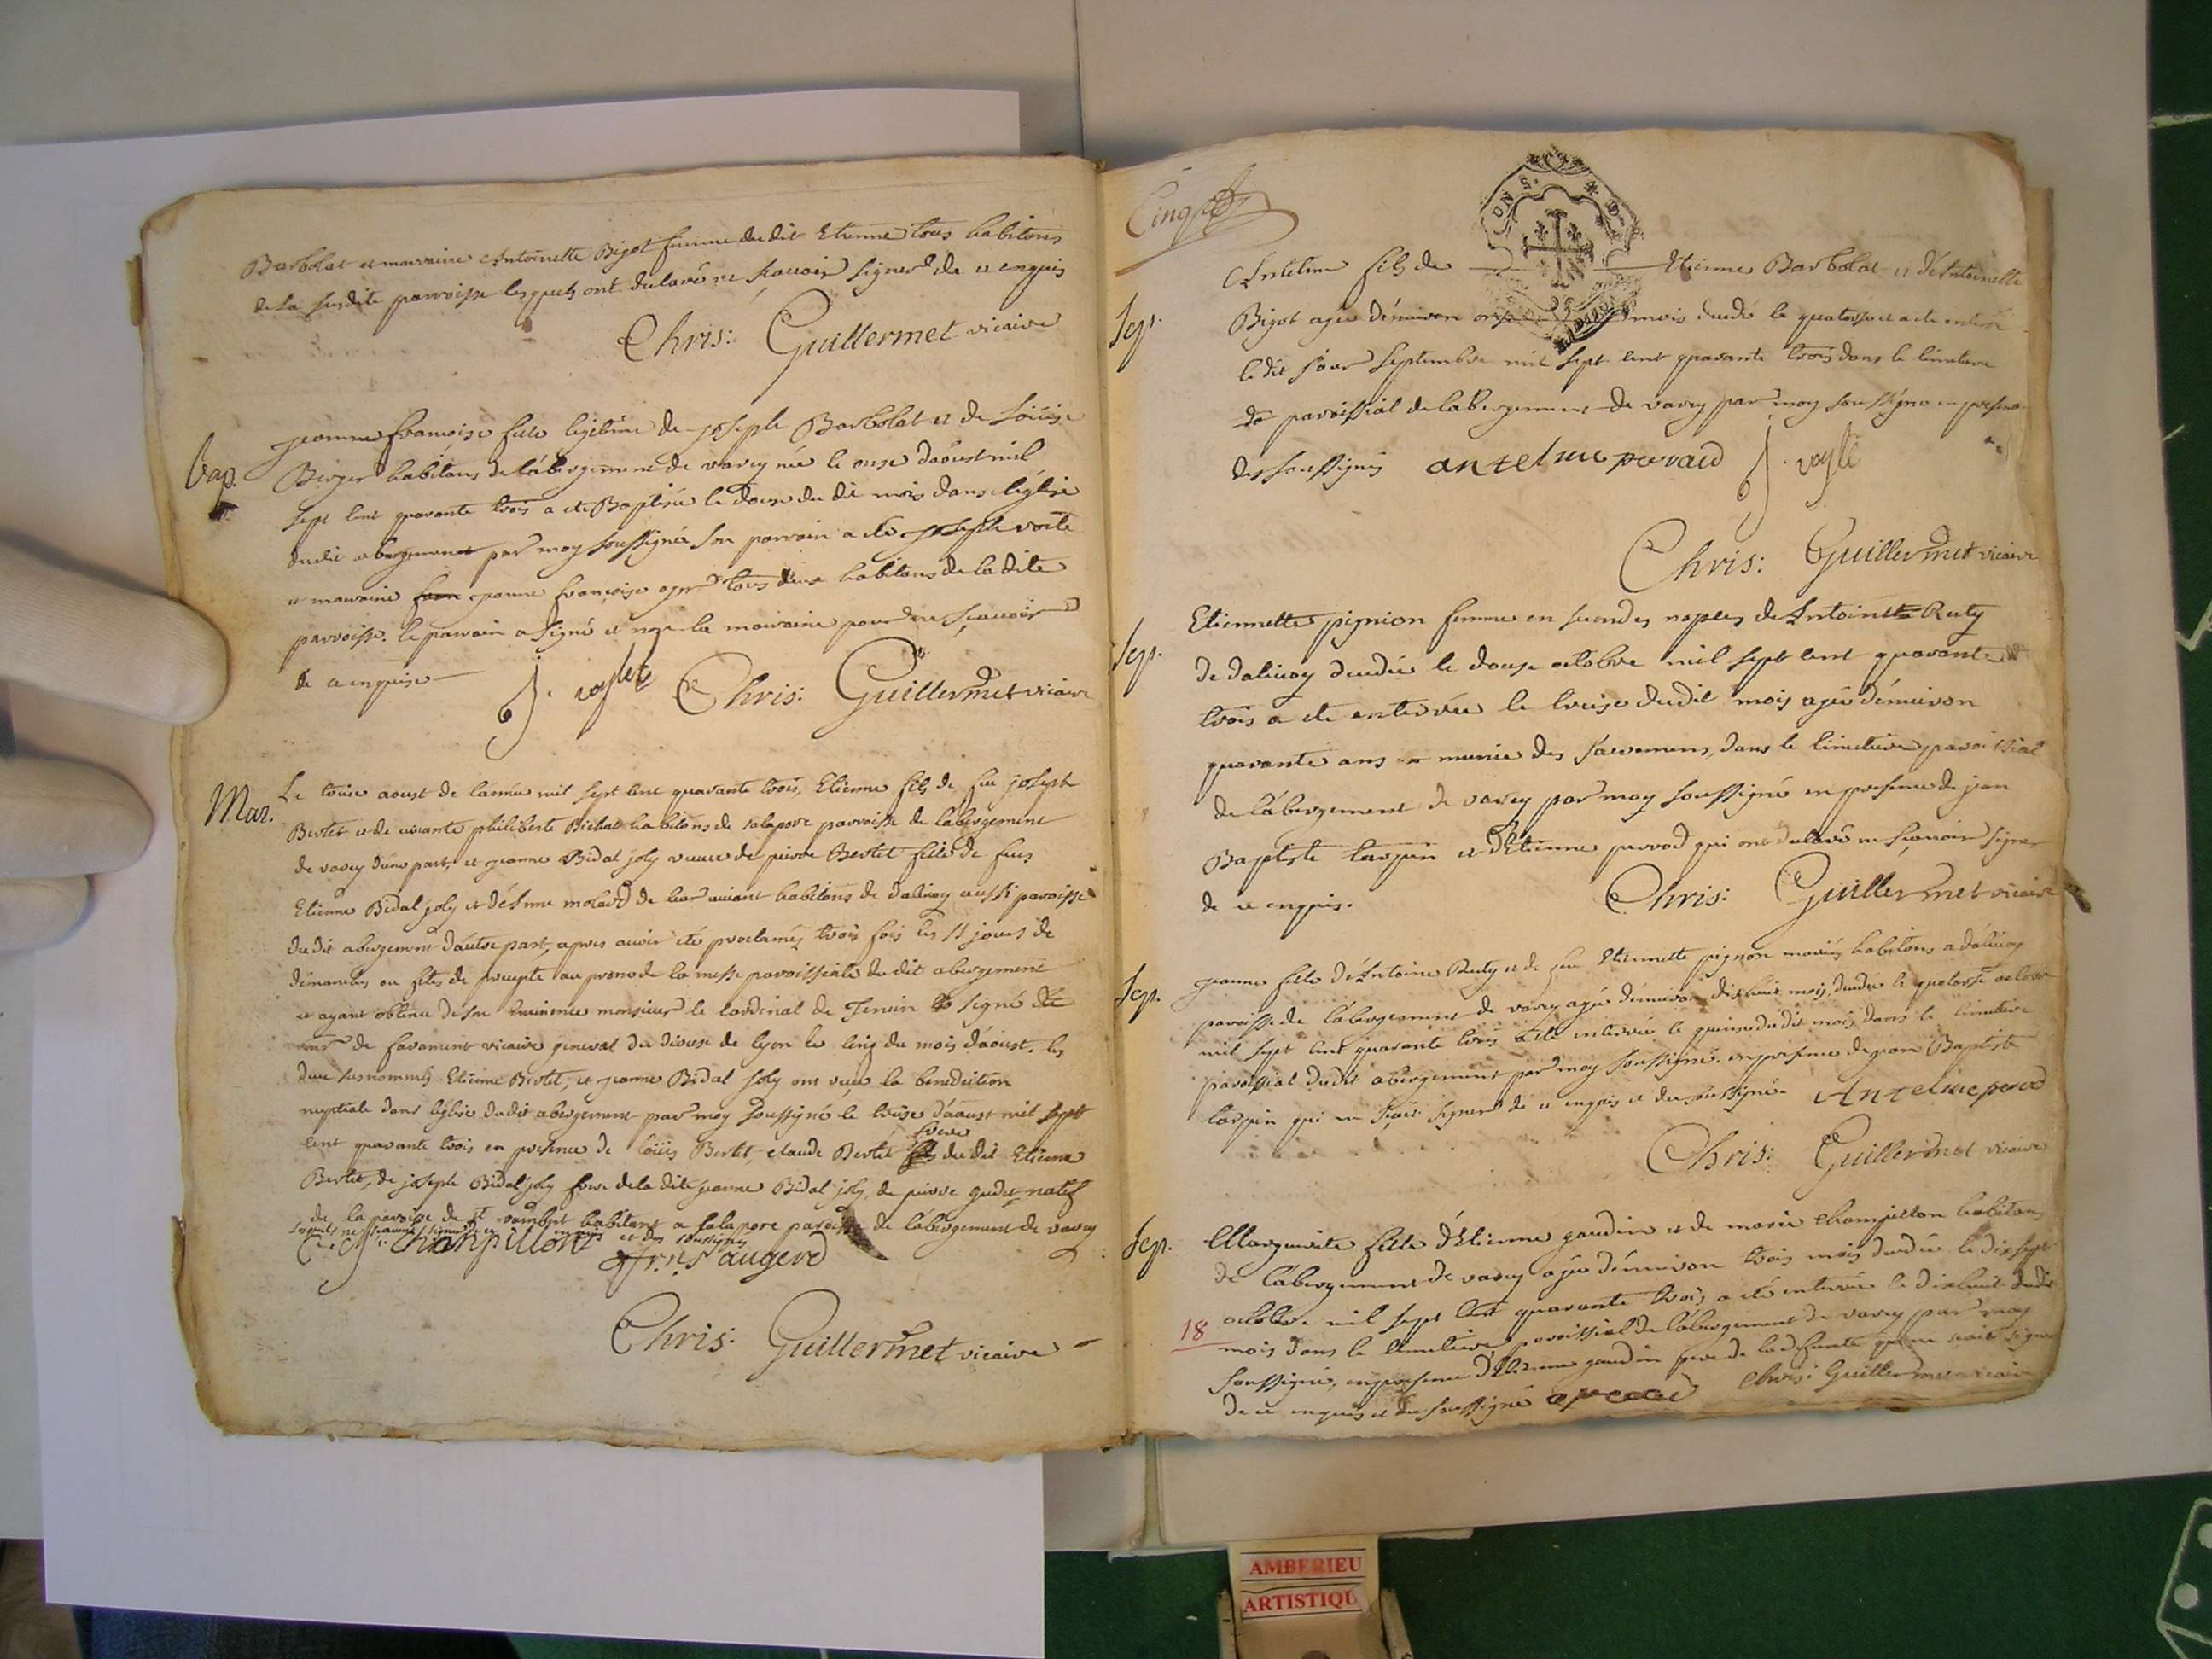 Barbolat et marraine Antoinette Bigot femme dudit Etienne tous habitans
de la susdite parroisse lesquels ont declaré ne sçavoir signer de ce enquis
Chris: Guillermet vicaire
Bap.
jeanne francoise fille legitime de joseph Barbolat et de Loüise
Berger habitans de l'abergement de varey née le onze d'aoust mil
sept cent quarante trois a eté Baptisée le douze du dit mois dans l'église
dudit abergement par moy soussigné son parrain a eté joseph
et marraine jeanne françoise tous deux habitans de la dite
parroisse. le parrain a signé et non la marraine pour ne sçavoir
de ce enquise
j. Chris: Guillermet vicaire
Mar.
Le treise aoust de l'année mil sept cent quarante trois, Etienne fils de feu joseph
Bertet et de vivante philiberte Bichat habitans de salapore parroisse de l'abergement
de varey d'une part, et jeanne Bidal joly veuve de pierre Bertet fille de feus
Etienne Bidal joly et d'Anne molard de leur vivant habitans de dalivoy aussi paroisse
du dit abergement d'autre part, apres avoir eté proclamés trois fois les jours de
dimanches ou fêtes de precepte au prone de la messe paroissiale du dit abergement
et ayant obtenu de son Eminence monsieur le cardinal de Tencin signé de
de vicaire general du diocese de lyon le cinq du mois d'aoust. les
deux susnommés Etienne Bertet, et jeanne Bidal joly ont reçu la benediction
nuptiale dans l'église dudit abergement par moy soussigné le treise d'aoust mil sept
cent quarante trois en presence de loüis Bertet, claude Bertet frere du dit Etienne
Bertet, de joseph Bidal joly frere de la dite jeanne Bidal joly, de pierre natif
de la paroisse de st rambert habitant a salapore paroisse de l'abergement de varey
et des soussignés
Champillon
augerd
Chris: Guillermet vicaire
Cinq
Sep.
Antelme fils de Etienne Barbolat et d'Antoinette
Bigot agé d'environ mois decedé le quatorze et a eté enterré
le dit jour septembre mil sept cent quarante trois dans le cimetiere
paroissial de l'abergement de varey par moy soussigné en presence
des soussignés antelme pervaud j.
Chris: Guillermet vicaire
Sep.
Etiennette pignion femme en secondes nopces de Antoine Ruty
de dalivoy decedée le douze octobre mil sept cent quarante
trois a eté enterrée le treise dudit mois agée d'environ
quarante ans munie des sacremens, dans le cimetiere paroissial
de l'abergement de varey par moy soussigné en presence de jean
Baptiste tarpin et d'Etienne pervod qui ont declaré ne sçavoir signer
de ce enquis. Chris: Guillermet vicaire
Sep.
jeanne fille d'Antoine Ruty et de feu Etiennette pignon mariés habitans a dalivoy
paroisse de l'abergement de varey agée d'environ dixhuit mois, decedée le quatorze octobre
mil sept cent quarante trois a eté enterrée le quinze dudit mois dans le cimetiere
paroissial dudit abergement par moy soussigné en presence de jean Baptiste
tarpin qui ne sçait signer de ce enquis et du soussigné. Antelme pervod
Chris: Guillermet vicaire
Sep.
Marguerite fille d'Etienne gaudin et de marie champillon habitans
de l'abergement de varey agée d'environ trois mois decedée le dix sept
octobre mil sept cent quarante trois a eté enterrée le dixhuit dudit
18
mois dans le cimetiere paroissial de l'abergement de varey par moy
soussigné, en presence d'Etienne gaudin pere de la defunte qui ne sçait signer
de ce enquis et du soussigné Chris: Guillermet vicaire
AMBERIEU
ARTISTIQU